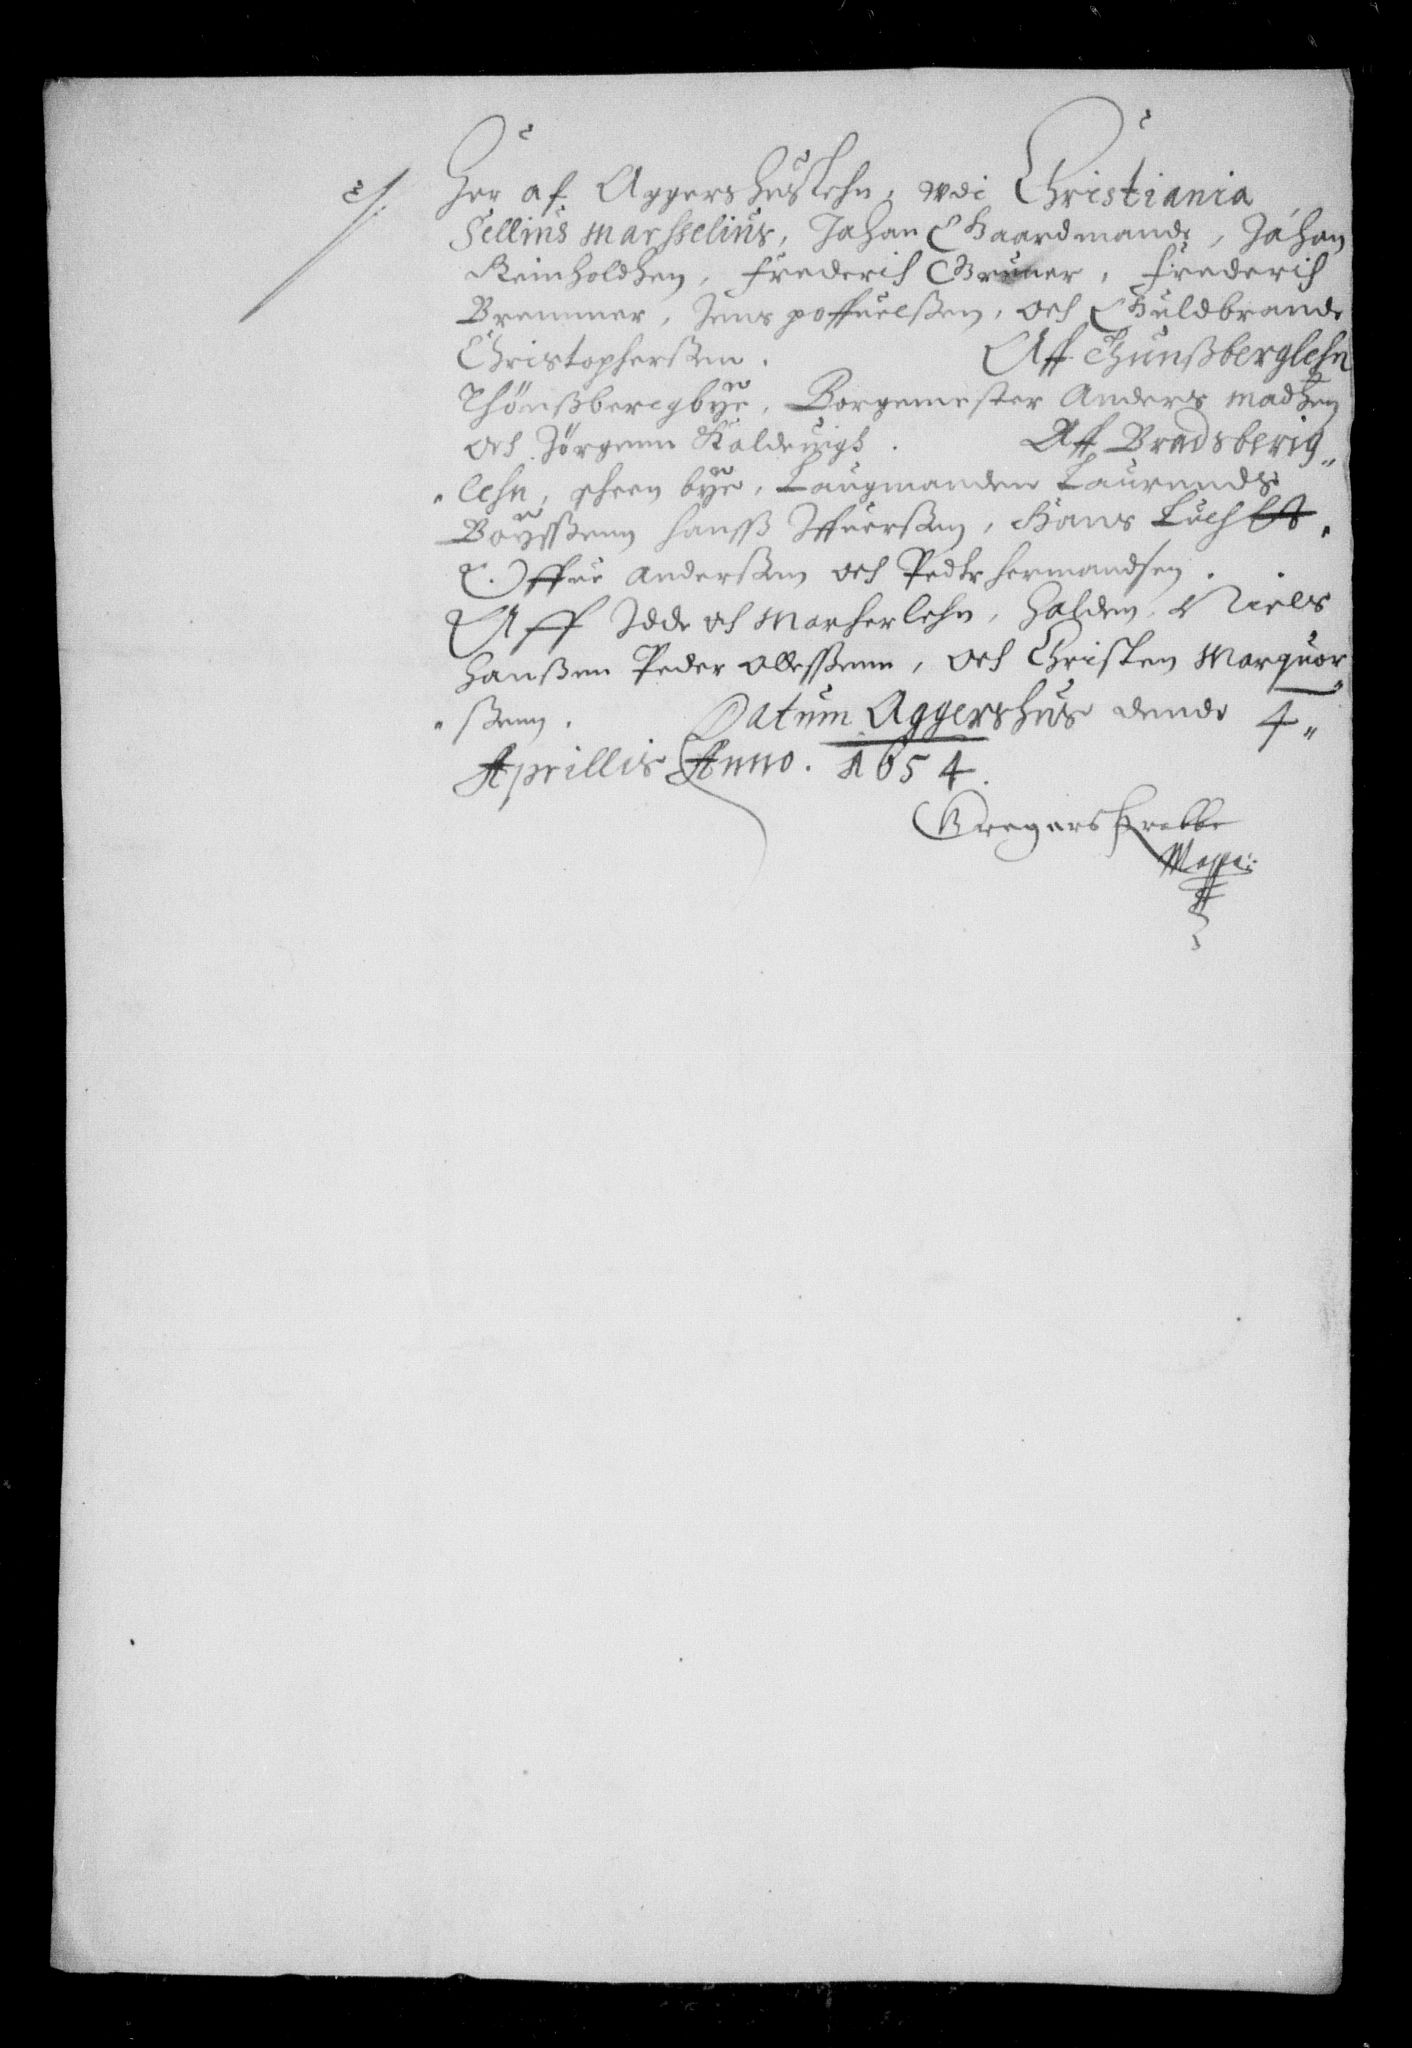 Her af Aggershuslehn, vdi Christiania
Sellius Marsselius, Johan Gaardmand, Johan
Reinholdsen, Frederich Gruner, Frederich
Bremmer, Jens poffuelßen, och Guldbrand
Christophersen. Aff Thunßberglehn
Thönßberigbye, Borgemester Anders Madsen
och Jörgenn Kaldeuigh. Aff Bradsberig
lehn, scheen bye, Laugmanden Laurendts
Boyssenn hansß Iffuerßen, Hans
Offue Anderßen och Peder hermandsen.
Aff Idde och Marcherlehn, Halden, Niels
Hanßen Peder ollessenn, och Christen Marquor
ßenn. Datum Aggershus dend 4
Aprillis Anno. 1654.
Gregers Krabbe